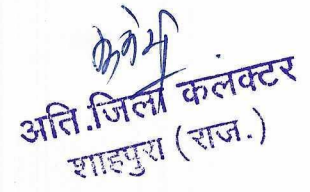 अति.जिला कलक्टर
शाहपुरा (राज.)